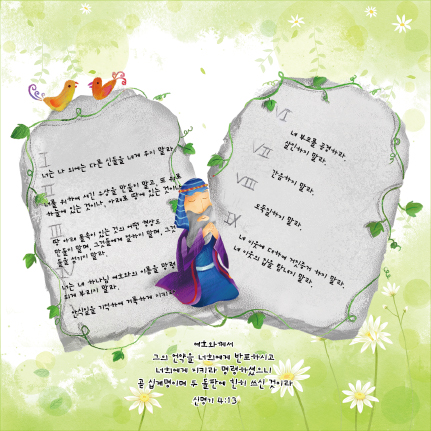 I
너는 나 외에는 다른 신들을 네게 두지 말라.
II
너를 위하여 새긴 우상을 만들지 말고, 또 위로
하늘에 있는 것이나, 아래로 땅에 있는 것이나,
III
땅 아래 물속에 있는 것의 어떤 형상도
만들지 말며, 그것들에게 절하지 말며, 그것
들을 섬기지 말라.
너는 네 하나님 여호와의 이름을 망령
되게 부르지 말라.
안식일을 기억하여 거룩하게 지키라.
VI
네 부모를 공경하라.
살인하지 말라.
VII
간음하지 말라.
VIII
도둑질하지 말라.
IX
네 이웃에 대하여 거짓증거 하지 말라.
네 이웃의 집을 탐내지 말라.
여호와께서
그의 언약을 너희에게 반포하시고
너희에게 지키라 명령하셨으니
곧 십계명이며 두 돌판에 친히 쓰신 것이라
신명기 4:13